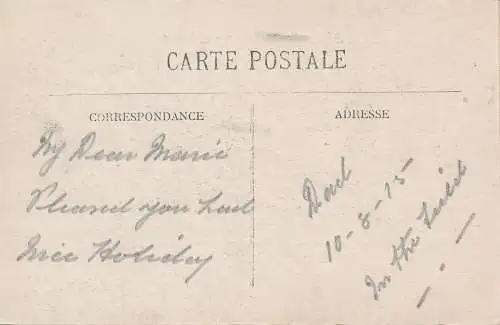 CARTE POSTALE
CORRESPONDANCE
ADRESSE
My Dear Marie
Pleased you had
nice Holiday
Dad
10-8-15
In the Field